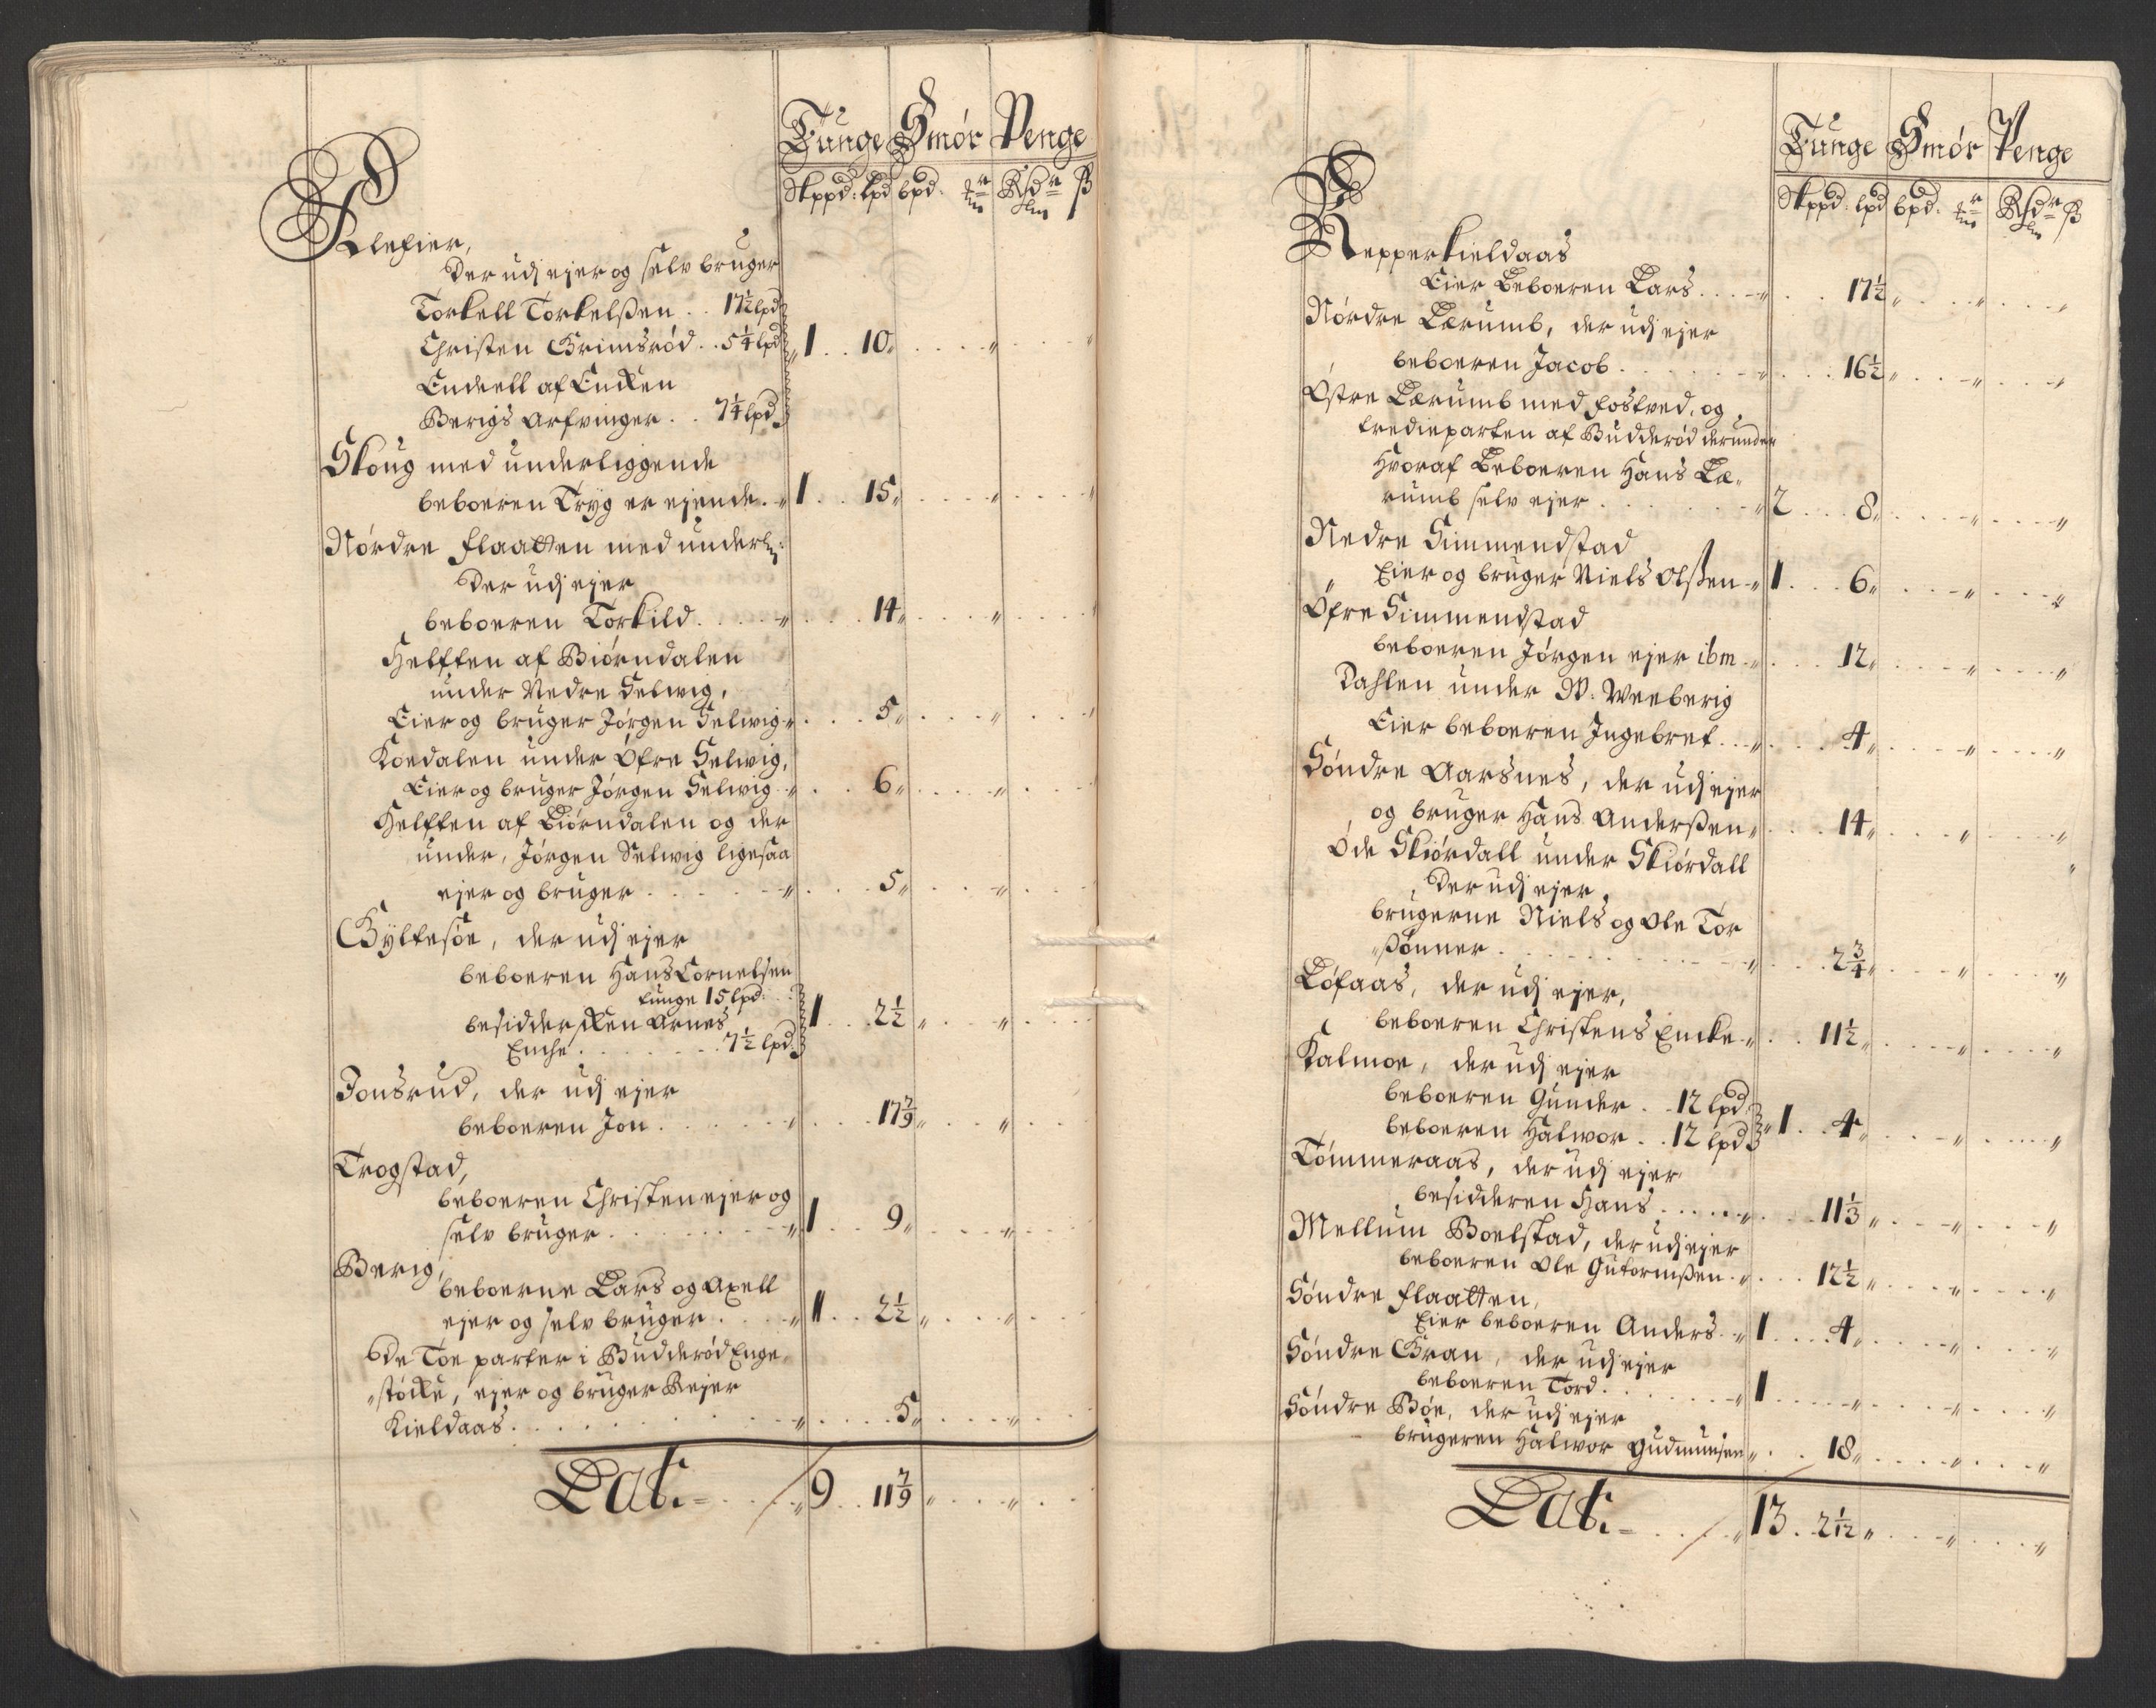 Tunge Smør Penge
Skppd: lpd bpd. Rdr ß
Klefier,
Der udj ejer og selv bruger
Torkell Torkelßen .. 17½ lpd
Christen Grimsrød .. 5¼ lpd 1 .. 10
Endeell af Encken
Berigs Arfvinger .. 7¼ lpd
Skoug med underliggende
beboeren Tryg er ejende . 1 .. 15
Nørdre Flaatten med underl:
Der udj ejer
beboeren Torkild . . . . 14
Helften af Biørndalen
under Nedre Selwig,
Eier og bruger Jørgen Selwig . . 5
Koedalen under Øfre Selwig,
Eier og bruger Jørgen Selwig . . 6
Helften af Biørndalen og der
under, Jørgen Selwig ligesaa
ejer og bruger . . . . 5
Gyltesøe, der udj ejer
beboeren Hans Cornelsen
tunge 15 lpd:
besidderskken Arnes 1 .. 2½
Enche . . . . 7½ lpd
Jonsrud, der udj ejer
beboeren Jon . . . . 17 7/9
Trogstad,
beboeren Christen ejer og
selv bruger . . . . 1 .. 9
Berig,
beboerne Lars og Axell
ejer og selv bruger . . . 1 .. 2½
De Toe parter i Budderød Enge
støcke, ejer og bruger Rejer
Kieldaas . . . . 5
Lat: . . . 9 .. 11 7/9
Tunge Smør Penge
Skppd: lpd bpd. Rdr ß
Repperkieldaas
Eier Beboeren Lars . . . 17½
Nørdre Lærumb, der udj ejer
beboeren Jacob . . . . 16½
Østre Lærumb med fostved, og
tredieparten af Budderød derunder
Hvoraf Beboeren Hans Læ,
rumb selv ejer . . . . 2 . . 8
Nedre Simmendstad
Eier og bruger Niels Olßen 1 . . 6
Øfre Simmendstad
beboeren Jørgen ejer ibm . . 12
Dahlen under W: Weeberig
Eier beboeren Ingebret . . . 4
Søndre Aarsnes, der udj ejer
og bruger Hans Anderßen . . 14
Øde Skiørdall under Skiørdall
Der udj ejer,
brugerne Niels og Ole Tor
ßønner . . . . 2¾
Løfaas, der udj ejer,
beboeren Christens Encke . . 11½
Kalmoe, der udj ejer
beboeren Gunder . . 12 lpd
beboeren Halwor . . 12 lpd 1 . . 4
Tømmeraas, der udj ejer
besidderen Hans . . . . 11⅓
Mellum Boelstad, der udj ejer
beboeren Ole Gutormßen . . 12½
Søndre Flaatten,
Eier beboeren Anders . . 1 . . 4
Søndre Gran, der udj ejer
beboeren Tord . . . . 1
Søndre Bøe, der udj ejer
brugeren Halwor Gudmunsen . . 18
Lat: . . . 13 . 2 1/12